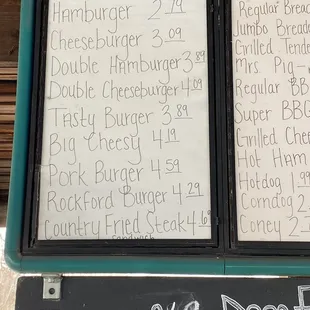 Hamburger 2.79
Cheeseburger 3.09
Double Hamburger 3.89
Double Cheeseburger 4.09
Tasty Burger 3.89
Big Cheesy 4.19
Pork Burger 4.59
Rockford Burger 4.29
Country Fried Steak
Sandwich
Regular Bread
Jumbo Bread
Grilled Tende
Mrs Pig-
Regular BB
Super BBQ
Grilled Chee
Hot Ham
Hotdog 1.99
Corndog 2.
Coney 2.